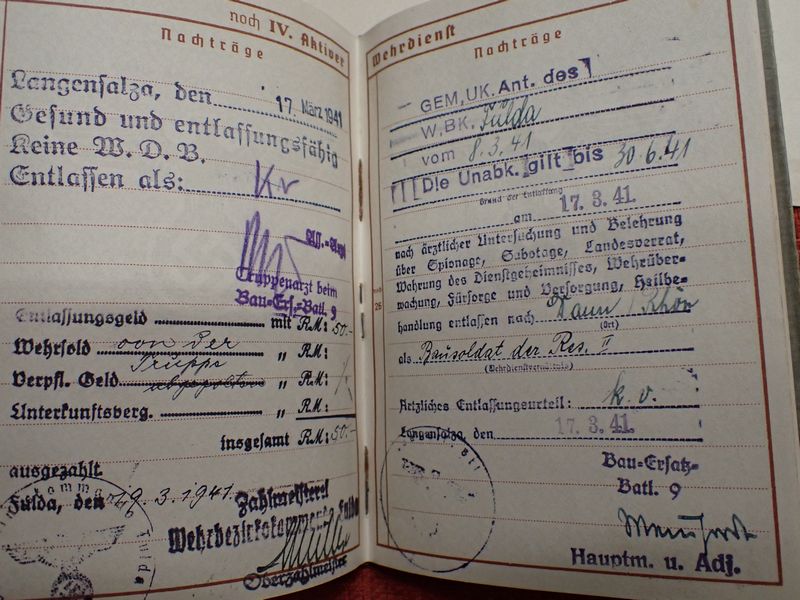 noch IV. Aktiver
Nachträge
Langensalza, den 17. März 1941
Gesund und entlassungsfähig
Keine W. D. B.
Entlassen als: Kv
Ass.-Arzt
Truppenarzt beim
Bau-Ers.-Batl. 9
Entlassungsgeld mit R.M: 50.-
Wehrsold von der " R.M:
Truppe
Verpfl. Geld " R.M:
Unterkunftsberg. " R.M:
insgesamt R.M: 50.-
ausgezahlt.
Fulda, den 19. 3. 1941
Zahlmeisterei
Wehrbezirkskommando Fulda
Oberzahlmeister
Wehrdienst
Nachträge
GEM. UK. Ant. des
W.BK. Fulda
vom 8.3.41
Die Unabk. gilt bis 30.6.41
Grund der Entlassung
am 17. 3. 41.
nach ärztlicher Untersuchung und Belehrung
über Spionage, Sabotage, Landesverrat,
Wahrung des Dienstgeheimnisses, Wehrüber-
wachung, Fürsorge und Versorgung, Heilbe-
handlung entlassen nach / Rhön
(Ort)
als Bausoldat der Res. II
(Wehrdienstverhältnis)
Ärtzliches Entlassungsurteil: k. v.
Langensalza, den 17. 3. 41.
Bau-Ersatz-
Batl. 9
Hauptm. u. Adj.
26